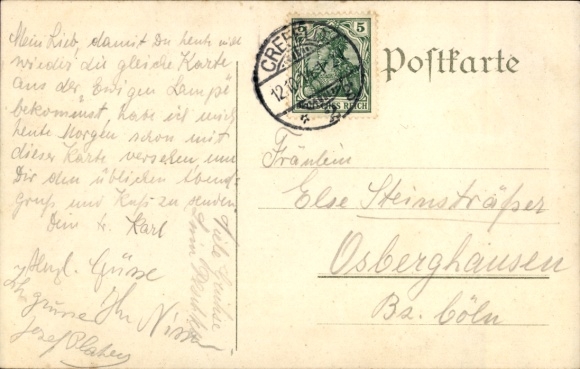 Mein Lieb, damit Du heute nicht
wieder die gleiche Karte
aus der Ewigen Lampe
bekommst, habe ich mich
heute Morgen schon mit
dieser Karte versehen um
Dir den üblichen Abend-
gruß und Kuß zu senden
Dein tr. Karl
Herzl. Grüsse
grüsse
Josef Platen
Viele Grüße
CREFELD
12.10.
5
DEUTSCHES REICH
Postkarte
Fräulein
Else Steinsträßer
Osberghausen
Bz. Cöln